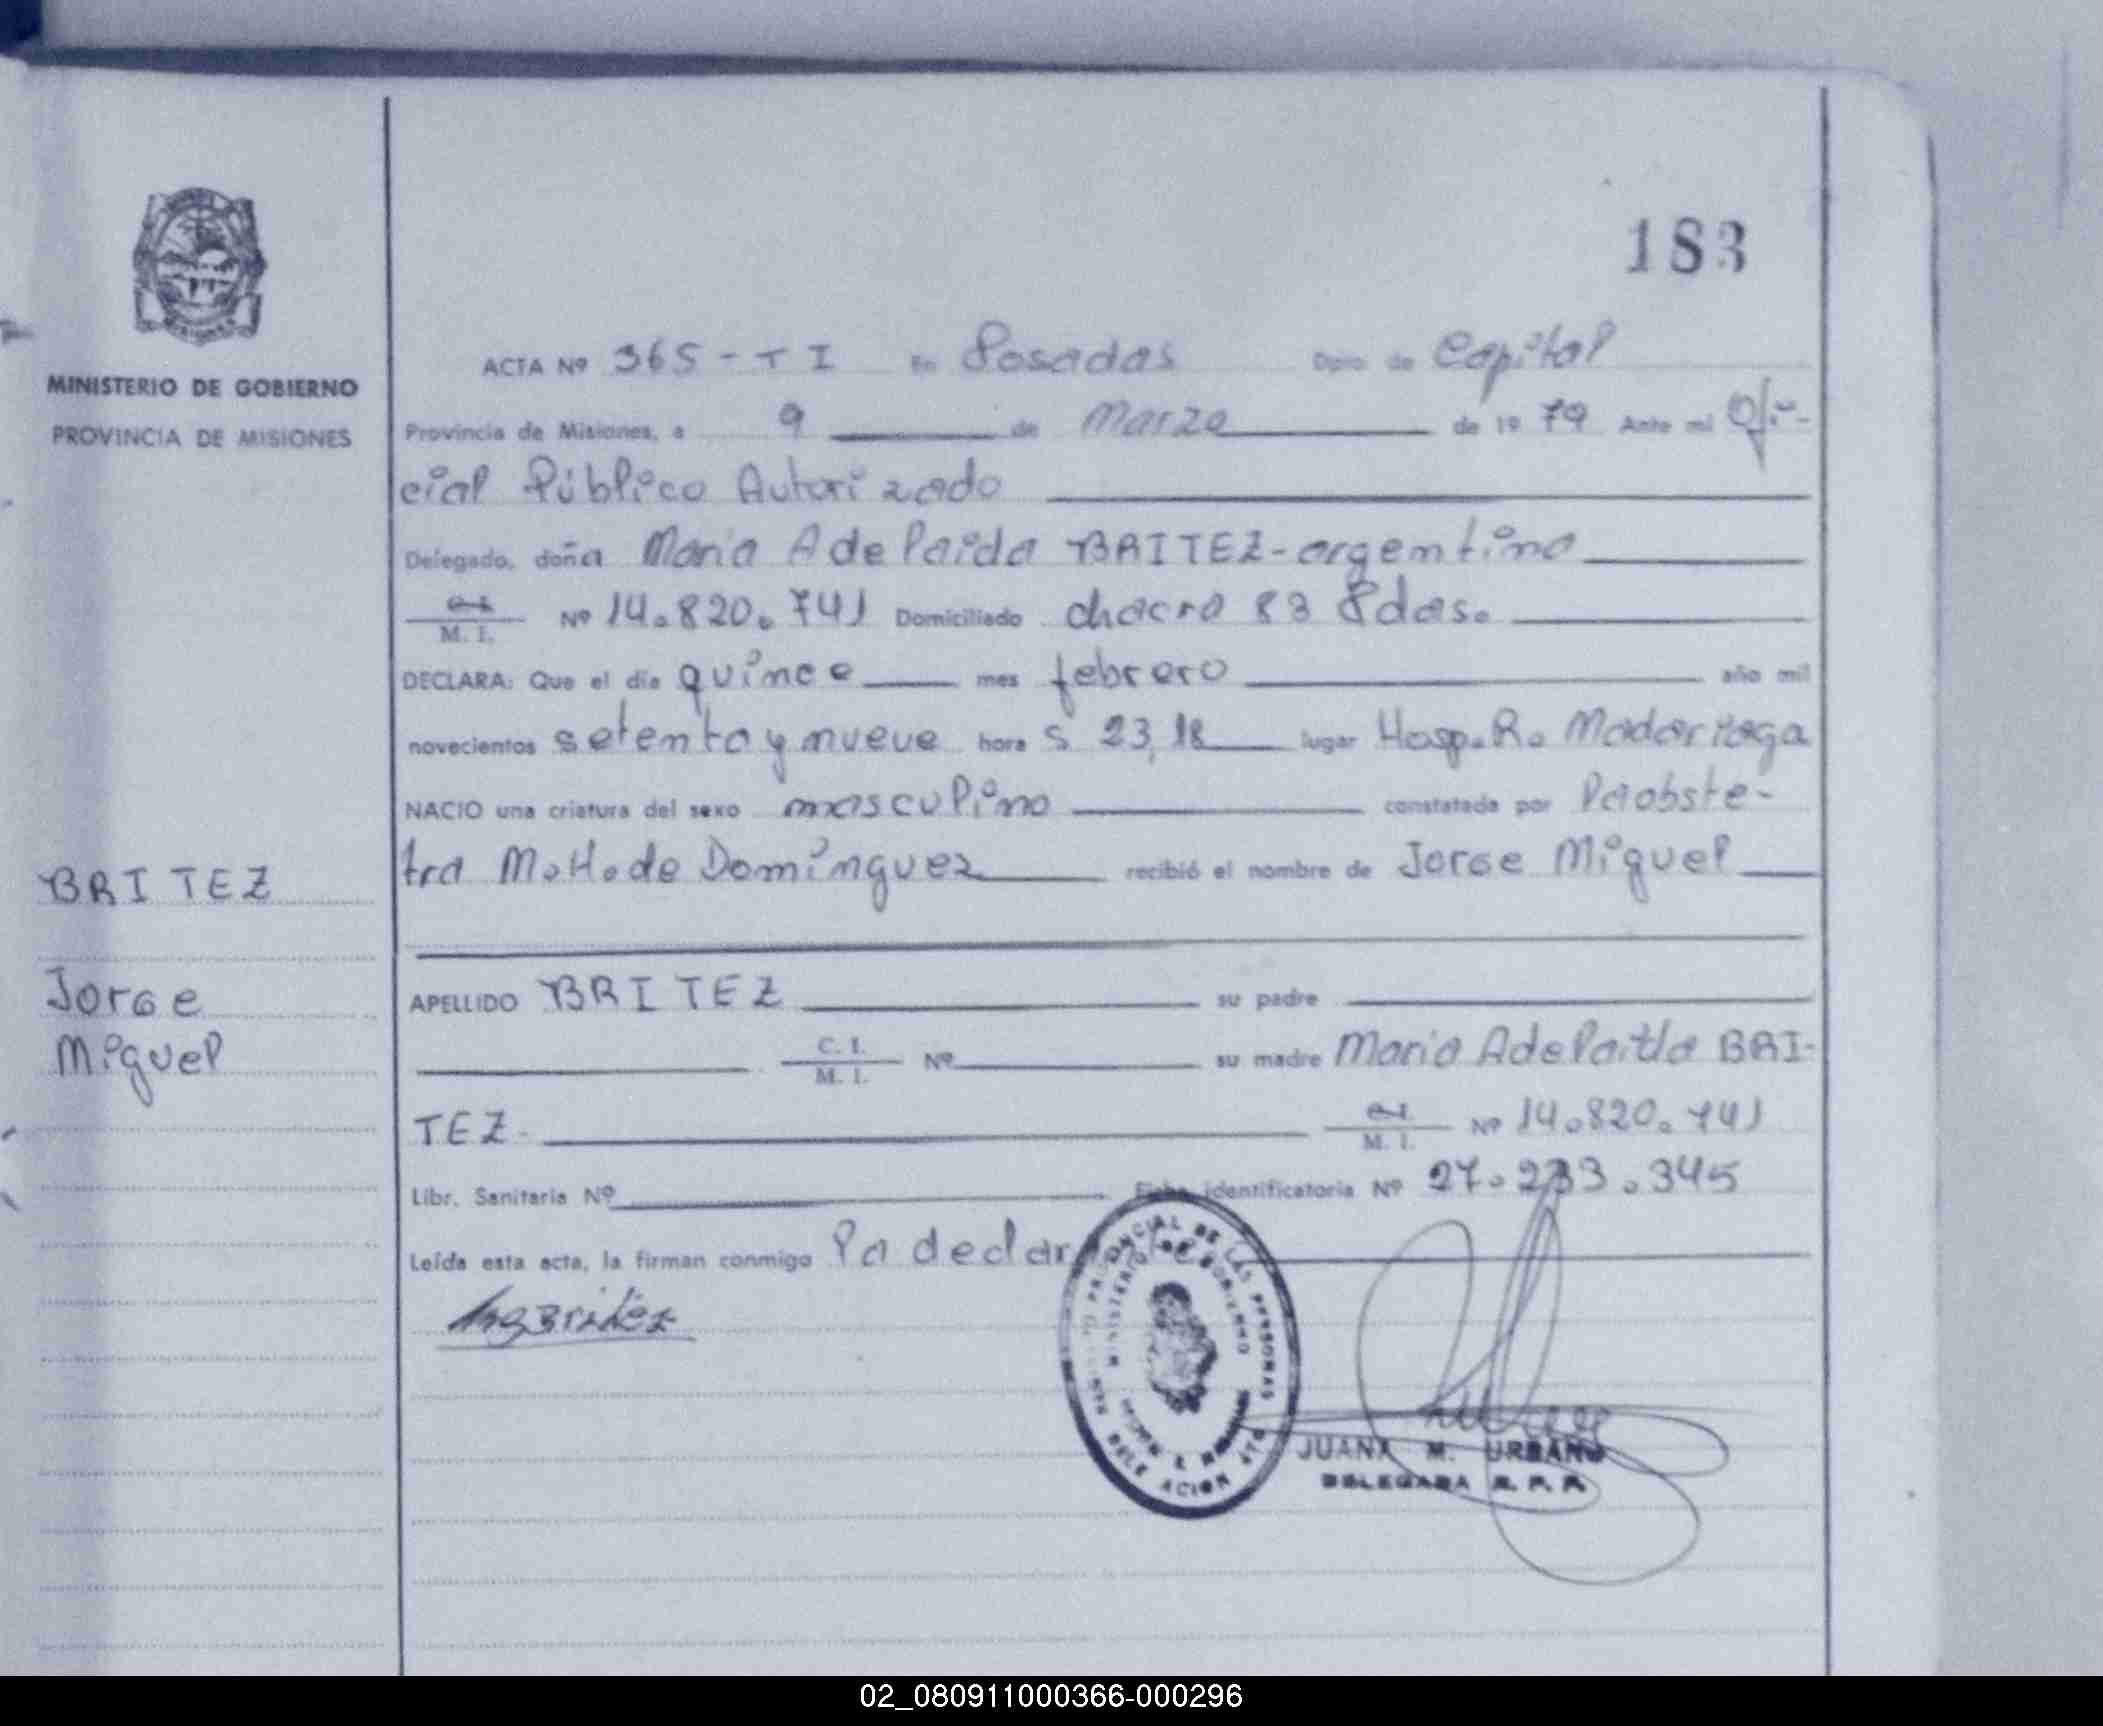 183
ACTA Nº 365 - T I En Posadas Dpto. de Capital
MINISTERIO DE GOBIERNO
PROVINCIA DE MISIONES
Provincia de Misiones, a 9 de Marzo de 19 79 Ante mí Ofi-
cial Público Autorizado
Delegado, doña Maria Adelaida BRITEZ - argentina
M. I. Nº 14.820.741 Domiciliado chacra 83 Pdas.
DECLARA: Que el día quince mes febrero año mil
novecientos setenta y nueve hora s 23,18 lugar Hosp. R. Madariaga
NACIO una criatura del sexo masculino constatada por la obste-
tra M. H. de Domínguez recibió el nombre de Jorge Miguel
BRITEZ
APELLIDO BRITEZ su padre
Jorge
Miguel
C. I.
M. I. Nº su madre Maria Adelaida BRI-
TEZ - M. I. Nº 14.820.741
Libr. Sanitaria Nº Ficha identificatoria Nº 27.233.345
Leída esta acta, la firman conmigo la declar
Britez
PROVINCIAL DE LAS PERSONAS
MINISTERIO DE GOBIERNO
DELEGACION
JUANA M. URBANO
DELEGADA R. P. P.
02_080911000366-000296